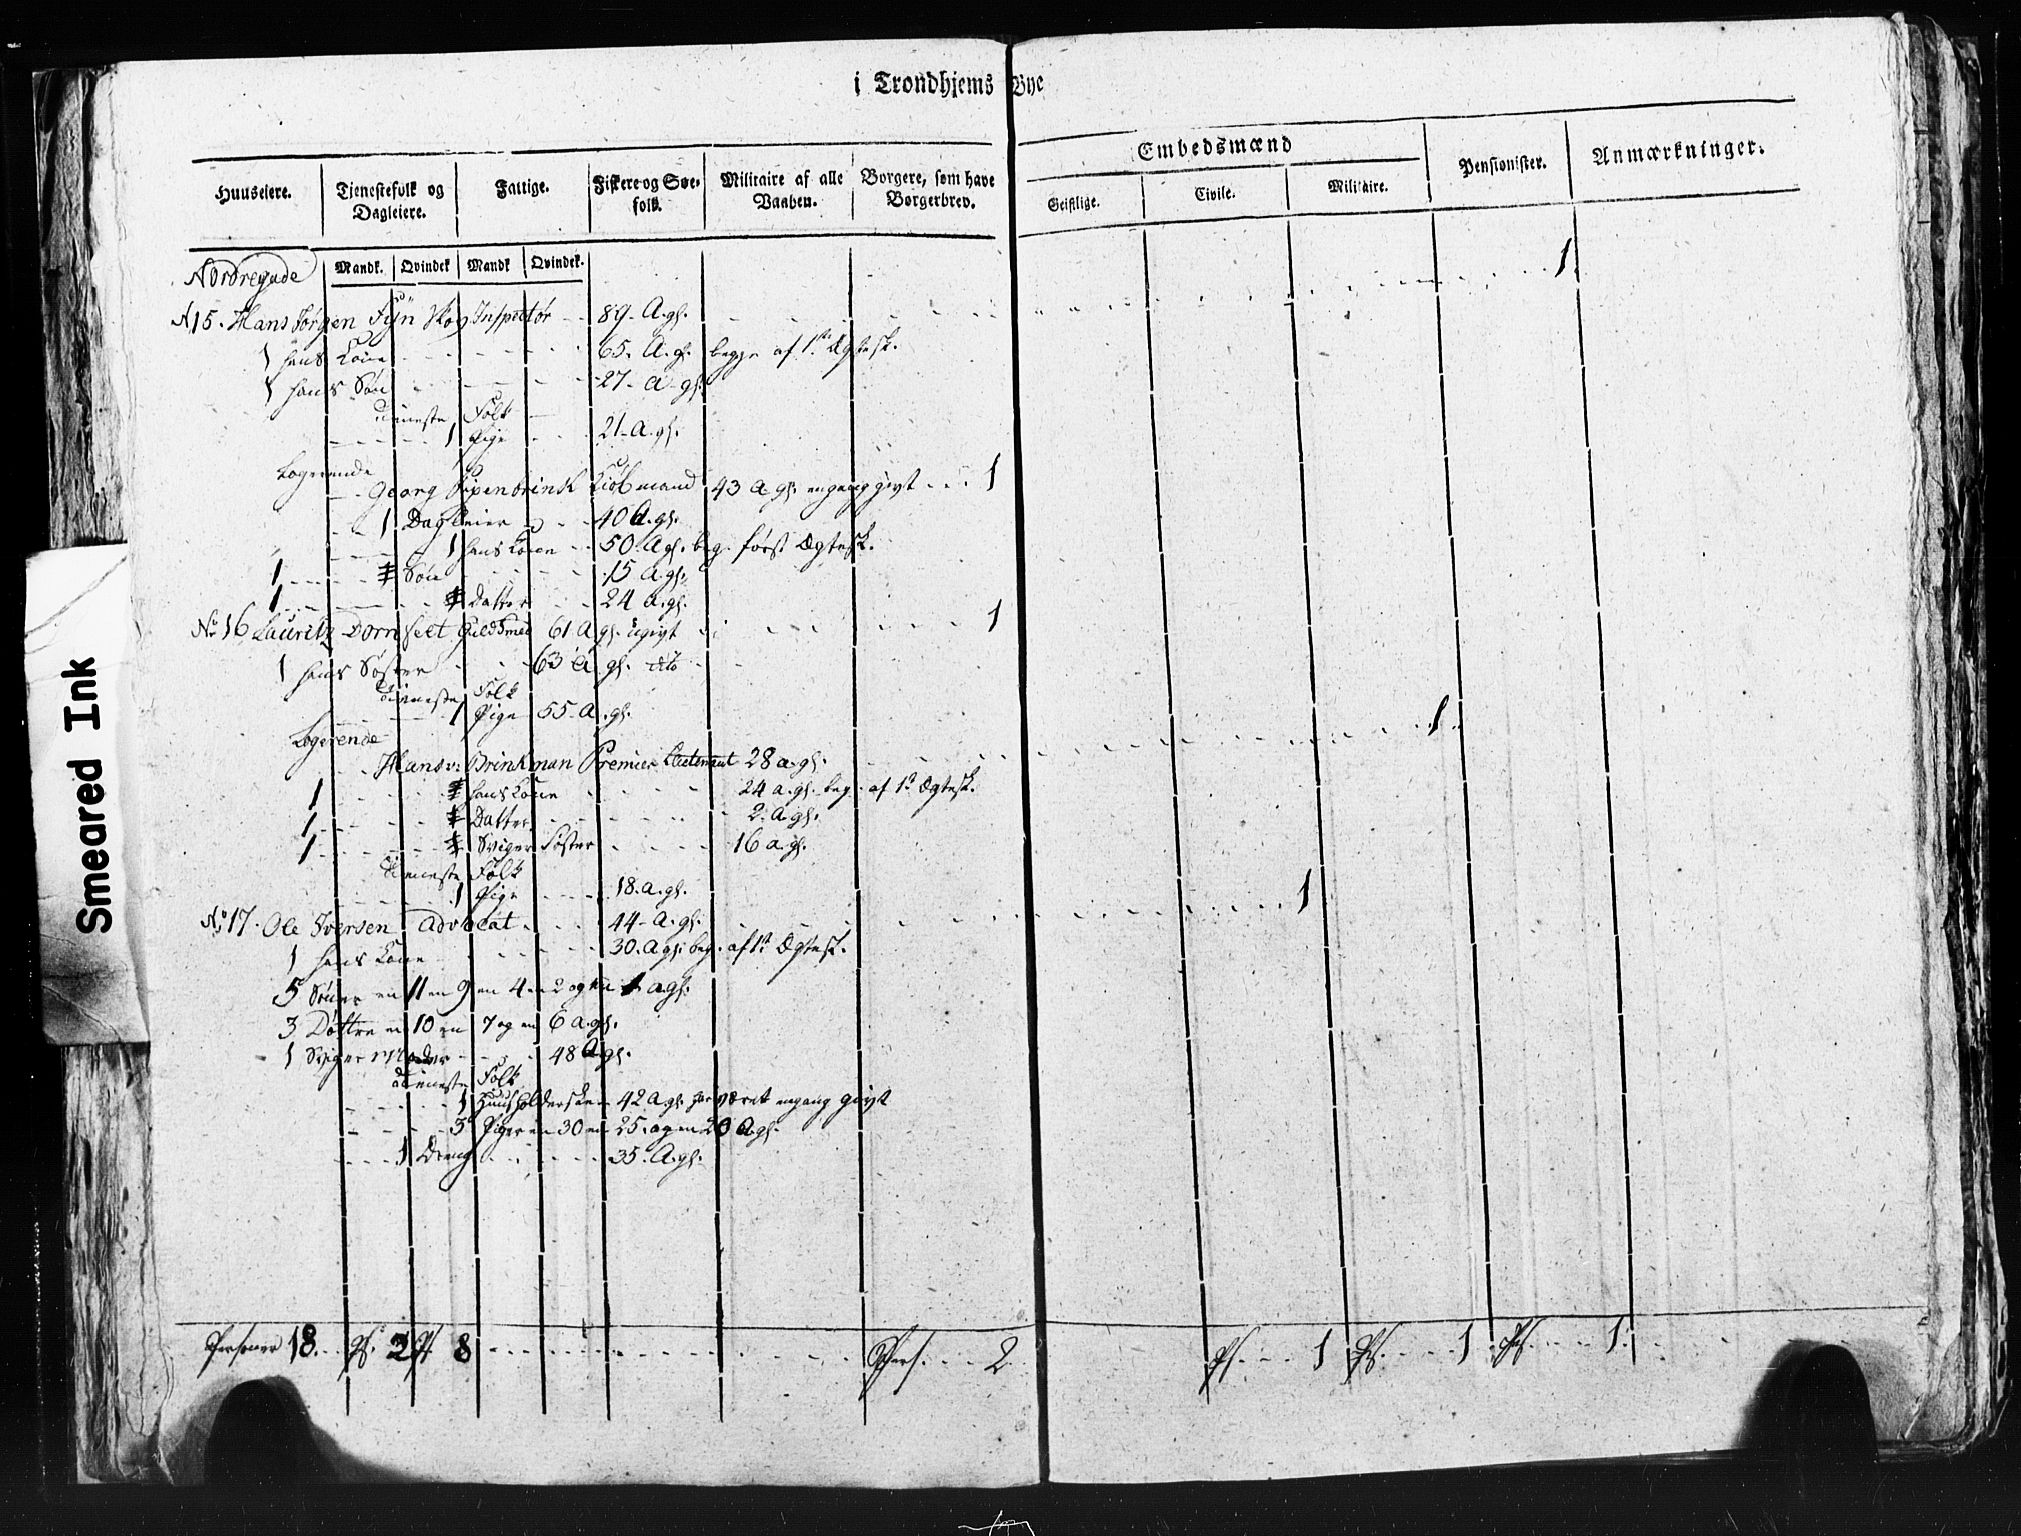 i Trondhjems Bye
Huuseiere.
Tienestefolk og Dagleiere.
Fattige.
Fiskere og Søefolk.
Militaire af alle Vaaben.
Borgere, som have Borgerbrev.
Embedsmænd
Geistlige.
Civile.
Militaire.
Pensionister.
Anmærkninger.
Mandk. Qvindek Mandk Qvindek.
Nordregade
N 15. Hans Jørgen Fyn Skov Inspectør 89 A. gl. 1
1 hans Kone 65. A. gl. begge af 1ste Ægtesk.
1 hans Søn 27 A gl.
Tieneste Folk
1 Pige 21 A. gl.
Logerende
Georg Pipenbrink Kiøbmand 43 A gl. engang givt 1
1 Dagleier 40 A. gl.
1 hans Kone 50. A gl. beg. først Ægtesk.
1 Søn 15 A. gl.
1 Datter 24 A. gl.
No 16 Lauritz Dorn Guldsmed 61 A gl. ugivt 1
1 hans Søster 63 A gl. dito
Tieneste Folk
1 Pige 55 A. gl.
Logerende
Hans v: Brinkman Premier Lieutenant 28 a. gl. 1
1 hans Kone 24 a. gl. beg. af 1ste Ægtesk.
1 Datter 2. A. gl.
1 Sviger Søster 16 a. gl.
Tieneste Folk
1 Pige 18. a. gl.
No 17. Ole Iversen Advocat 44 A. gl. 1
1 hans Kone 30. A gl. beg. af 1ste Ægtesk.
5 Sønner en 11 en 9 en 4 en 2 og en 1 a gl.
3 Døttre en 10 en 7 og en 6 a. gl.
1 Sviger Moder 48 A gl.
Tieneste Folk
1 Huusholderske 42 A. gl. har været engang givt
3 Piger en 30 en 25. og en 20 A gl.
1 Dreng 35. A. gl.
Personer 18. Ps. 2 Ps 8 Pers. 2 Ps. 1 Ps. 1 Ps. 1
Smeared Ink